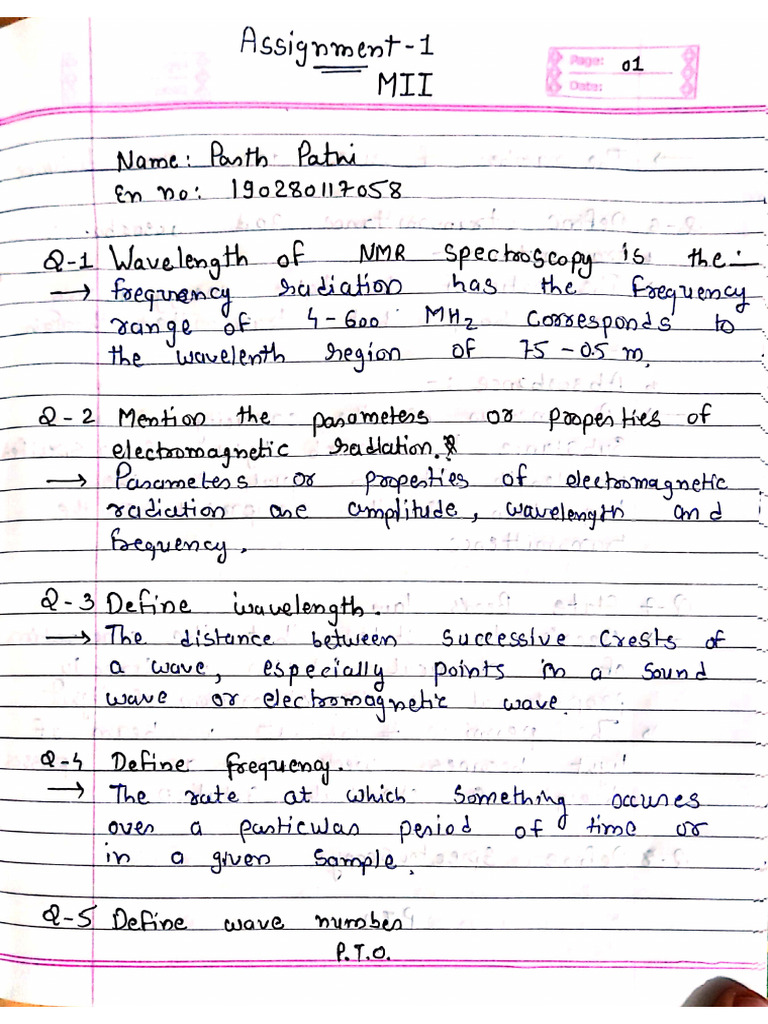 Assignment-1
MII
Page: 01
Date:
Name: Parth Patni
En no: 190280117058
Q-1 Wavelength of NMR spectroscopy is the:-
→ frequency radiation has the frequency
range of 4-600 MHz corresponds to
the wavelenth region of 75-0.5 m.
Q-2 Mention the parameters or properties of
electromagnetic radiation.
→ Parameters or properties of electromagnetic
radiation are amplitude, wavelength and
frequency.
Q-3 Define wavelength.
→ The distance between successive crests of
a wave, especially points in a sound
wave or electromagnetic wave.
Q-4 Define frequency.
→ The rate at which something occures
over a particular period of time or
in a given sample.
Q-5 Define wave number
P.T.O.